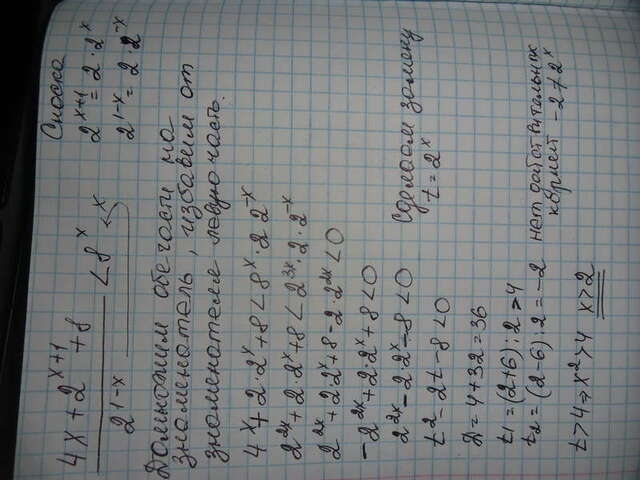 4x + 2^{x+1} + 8
2^{1-x}
< 8^x
x
Сноска
2^{x+1} = 2 · 2^x
2^{1-x} = 2 · 2^{-x}
Домножим обе части на
знаменатель, избавим от
знаменателя левую часть.
4^x + 2 · 2^x + 8 < 8^x · 2 2^{-x}
2^{2x} + 2 · 2^x + 8 < 2^{3x} · 2 · 2^{-x}
2^{2x} + 2 · 2^x + 8 - 2 · 2^{2x} < 0
-2^{2x} + 2 · 2^x + 8 < 0
2^{2x} - 2 · 2^x - 8 < 0
Сделаем замену
t = 2^x
t^2 - 2t - 8 < 0
D = 4 + 32 = 36
t1 = (2+6) : 2 > 4
t2 = (2-6) : 2 = -2 нет действительных
корней -2 ≠ 2^x
t > 4 ⇒ x^2 > 4 x > 2